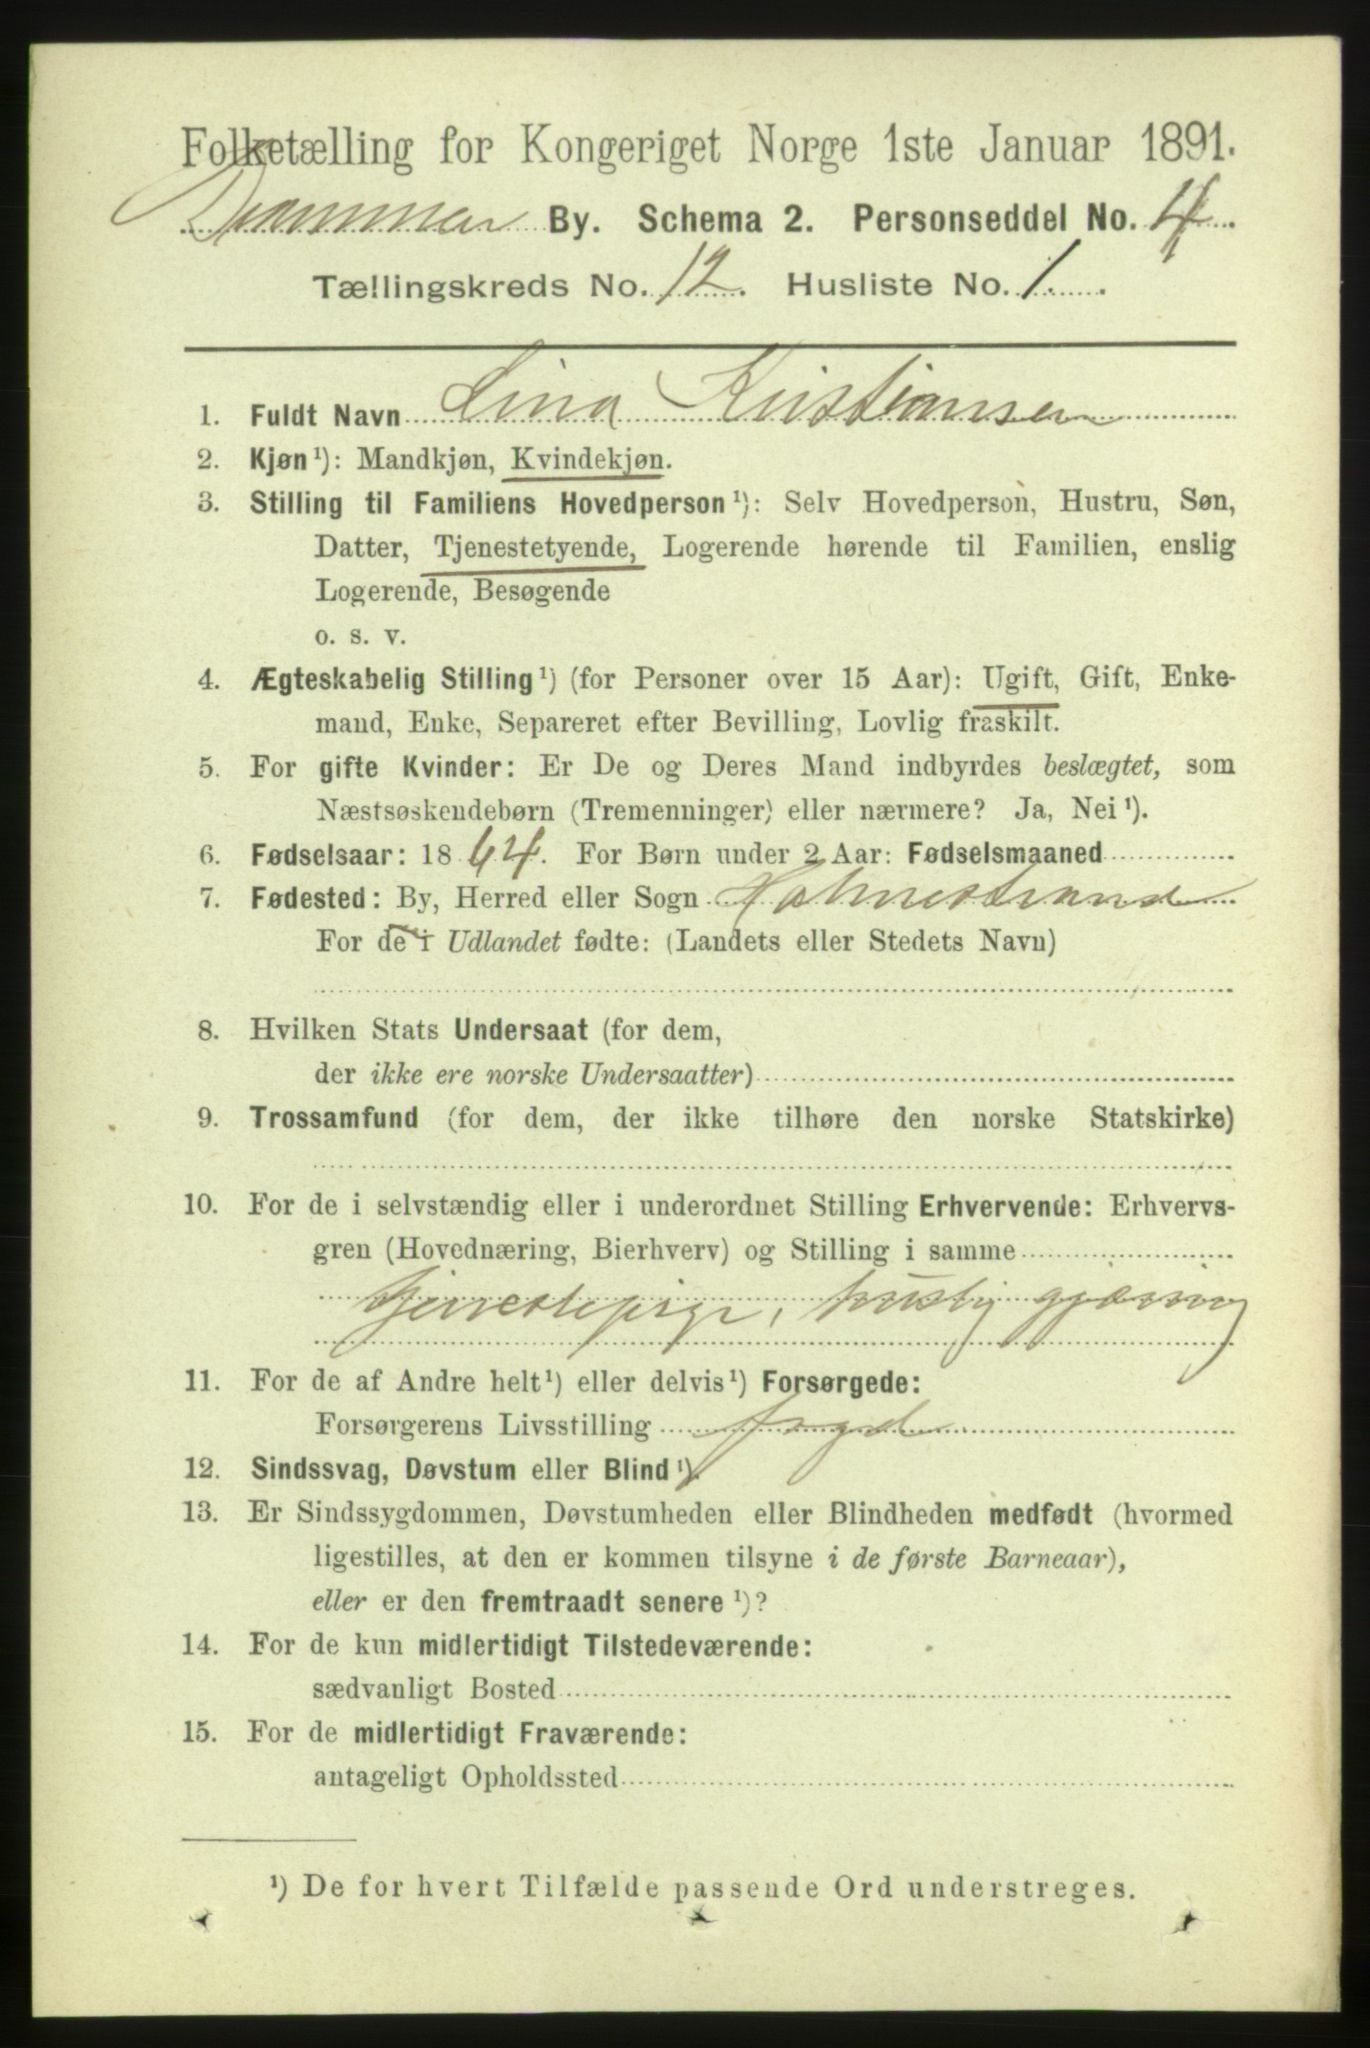 Folketælling for Kongeriget Norge 1ste Januar 1891.
Drammen By. Schema 2. Personseddel No. 4
Tællingskreds No. 12. Husliste No. 1.
1. Fuldt Navn Lina Kristiansen
2. Kjøn¹): Mandkjøn, Kvindekjøn.
3. Stilling til Familiens Hovedperson¹): Selv Hovedperson, Hustru, Søn,
Datter, Tjenestetyende, Logerende hørende til Familien, enslig
Logerende, Besøgende
o. s. v.
4. Ægteskabelig Stilling¹) (for Personer over 15 Aar): Ugift, Gift, Enke-
mand, Enke, Separeret efter Bevilling, Lovlig fraskilt.
5. For gifte Kvinder: Er De og Deres Mand indbyrdes beslægtet, som
Næstsøskendebørn (Tremenninger) eller nærmere? Ja, Nei¹).
6. Fødselsaar: 1864. For Børn under 2 Aar: Fødselsmaaned
7. Fødested: By, Herred eller Sogn Holmestrand
For de i Udlandet fødte: (Landets eller Stedets Navn)
8. Hvilken Stats Undersaat (for dem,
der ikke ere norske Undersaatter)
9. Trossamfund (for dem, der ikke tilhøre den norske Statskirke)
10. For de i selvstændig eller i underordnet Stilling Erhvervende: Erhvervs-
gren (Hovednæring, Bierhverv) og Stilling i samme
Tjenestepige, huslig gjærning
11. For de af Andre helt¹) eller delvis¹) Forsørgede:
Forsørgerens Livsstilling fogd
12. Sindssvag, Døvstum eller Blind¹).
13. Er Sindssygdommen, Døvstumheden eller Blindheden medfødt (hvormed
ligestilles, at den er kommen tilsyne i de første Barneaar),
eller er den fremtraadt senere¹)?
14. For de kun midlertidigt Tilstedeværende:
sædvanligt Bosted
15. For de midlertidigt Fraværende:
antageligt Opholdssted
¹) De for hvert Tilfælde passende Ord understreges.